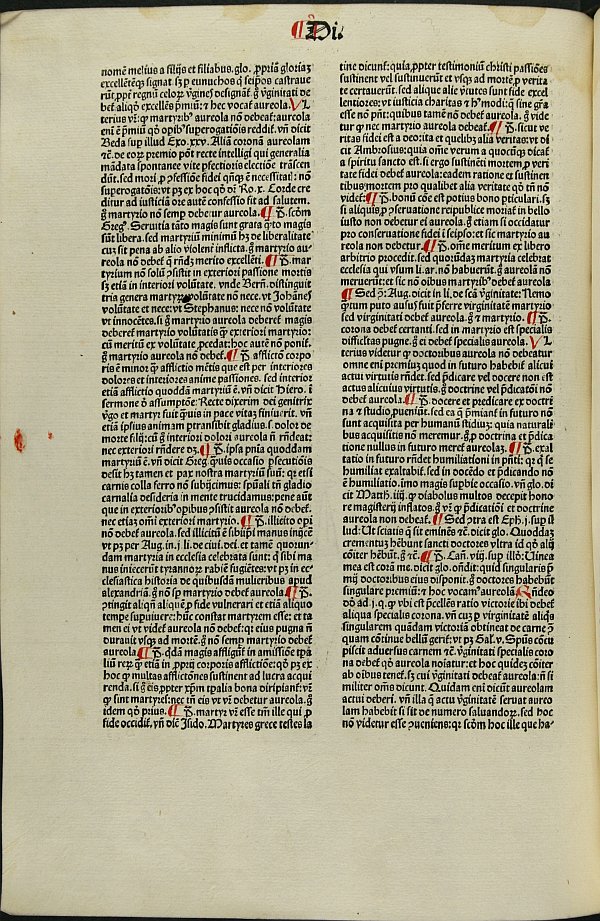 Di.
nomē melius a filijs et filiabus. glo. ꝓpriā gloriaʒ
excellētēqʒ signat. sʒ p eunuchos q̄ seipos castraue
rūt, ꝓpt̄ regnū celoꝝ. ꝟgīnes designāt̄. g̊ ꝟginitati de
bet̄ aliqd̊ excellēs p̄miū: ⁊ hec vocat̄ aureola. Vl
terius vr̄: ꝙ martyribꝰ aureola nō debeat̄: aureola
eni ē p̄miū qd̊ opibꝰ supererogatiōis reddit̄. vn̄ dicit
Beda sup illud Exo. xxv. Aliā coronā aureolam
⁊c̄. de eoꝝ premio pōt recte intelligi qui generalia
mādata spontanee vite pfectioris electiōe trāscen
dūt. sed mori ꝓ ꝯfessiōe fidei qn̄qʒ ē necessitatis: nō
supererogatōis: vt pʒ ex hoc qd̊ dr̄ Ro. x. Corde cre
ditur ad iusticiā ore autē confessio fit ad salutem.
g̊ martyrio nō semꝑ debetur aureola. ¶ P̄. scd̄m
Greg̊. Seruitia tāto magis sunt grata q̄nto magis
sūt libera. sed martyriū minimū hʒ de liberalitate
cuʒ sit pena ab alio violenter inflicta. g̊ martyrio au-
reola nō debet̄ q̄ rn̄dʒ merito excellēti. ¶ P̄. mar
tyrium nō solū ꝯsistit in exteriori passione mortis
sʒ etiā in interiori volūtate. vnde Bern̄. distinguit
tria genera martyrʒ volūtate nō nece. vt Iohānes
volūtate et nece: vt Stephanus: nece nō volūtate
vt innocētes. si g̊ martyrio aureola deberet̄ magis
deberet̄ martyrio volūtatis ꝙ̄ exteriori martyrio:
cū meritū ex volūtate ꝓcedat: hoc autē nō ponit̄.
g̊ martyrio aureola nō debet̄. ¶ P̄. afflictō corpo
ris ē minor ꝙ̄ afflictio mētis que est per interiores
dolores et interiores anime passiones. sed interior
etiā afflictio quoddā martyriū ē. vn̄ dicit Hiero. ī
sermone d̊ assumptōe: Recte dixerim dei genitrix
ꝟgo et martyr fuit ꝙ̄uis in pace vitaʒ finiuerit. vn̄
etiā ipsius animam ꝑtransibit gladius. s. dolor de
morte filij: cū g̊ interiori dolori aureola n̄ rn̄deat:
nec exteriori rn̄dere dʒ. ¶ P̄. ipsa pnīa quoddam
martyriū ē. vn̄ dicit Greg̊. ꝙ̄uis occasio ꝑsecutiōis
desit hʒ tamen et pax nostra martyriū suū: qꝛ etsi
carnis colla ferro nō subijcimus: spūali tn̄ gladio
carnalia desideria in mente trucidamus: pene aūt
que in exterioribꝰ opibus ꝯsistit aureola nō debet̄.
nec etiaʒ om̄i exteriori martyrio. ¶ P̄. illicito opi
nō debet̄ aureola. sed illicitū ē sibiipi manus inijcē
vt pʒ per Aug. in. j. li. de ciui. dei. et tamē quorun-
dam martyria in ecclesia celebrata sunt: q̄ sibi ma
nus iniecerūt tyrannoꝝ rabiē fugiētes: vt pʒ in ec
clesiastica historia de quibusdā mulieribus apud
alexandriā. g̊ nō sp̄ martyrio debet̄ aureola. ¶ P̄.
ꝯtingit aliqn̄ aliquē ꝓ fide vulnerari et etiā aliquo
tempe supuiuere: hūc constat martyrem esse: et ta
men ei vt videt̄ aureola nō debet̄: qꝛ eius pugna n̄
durauit vsqʒ ad mortē. g̊ nō semꝑ martyrio debet̄
aureola. ¶ P̄. qdā magis affligūt̄ in amissiōe tꝑa
liū reꝝ ꝙ̄ etiā in ꝓprij corporis afflictiōe: qd̊ pʒ ex
hoc ꝙ multas afflictōnes sustinent ad lucra acqui
renda. si g̊ eis. ꝓpter xp̄m tꝑalia bona diripiant̄: vr̄
ꝙ sint martyres: nec tn̄ eis vt vr̄ debetur aureola. g̊
idem qd̊ prius. ¶ P̄. martyr vr̄ esse tm̄ ille qui ꝓ
fide occidit̄. vn̄ dic̄ Isido. Martyres grece testes la
tine dicunt̄: quia, ꝓpter testimoniū christi passiōes
sustinent vel sustinuerūt et vsqʒ ad mortē, ꝓ verita
te certauerūt. sed alique alie ꝟtutes sunt fide excel
lentiores: vt iusticia charitas ⁊ hꝰmōi: q̄ sine gr̄a
esse nō pn̄t: quibus tamē nō debet̄ aureola. g̊ vide
tur ꝙ nec martyrio aureola debeat̄. ¶ P̄. sicut ve
ritas fidei est a deo: ita et quelibʒ alia veritas: vt di
cit Ambrosius: quia om̄e verum a quocūqʒ dicat̄
a spiritu sancto est. si ergo sustinēti mortem ꝓ veri
tate fidei debet̄ aureola: eadem ratione et sustinen
tibus mortem pro qualibet alia veritate qd̊ tn̄ nō
videt̄: ¶ P̄. bonū cōe est potius bono pticulari. sʒ
si aliquis, ꝓ ꝯseruatione reipublice moriat̄ in bello
iusto non debetur ei aureola. g̊ etiam si occidatur
pro conseruatione fidei ī seipso: et sic martyrio au
reola non debetur. ¶ P̄. om̄e meritum ex libero
arbitrio procedit. sed quorūdaʒ martyria celebrat
ecclesia qui vsum li. ar. nō habuerūt. g̊ aureolā nō
meruerūt: et sic nō oībus martyribꝰ debet̄ aureola
¶ Sed ꝯ: Aug. dicit in li. de scā ꝟginitate: Nemo
qn̄tum puto ausus fuit p̄ferre virginitatē martyrio
sed virginitati debet̄ aureola. g̊ ⁊ martyrio. ¶ P̄.
corona debet̄ certanti. sed in martyrio est specialis
difficltas pugne. g̊ ei debet̄ specialis aureola. Vl
terius videtur ꝙ doctoribus aureola nō debeatur
omne eni premiuʒ quod in futuro habebit̄ alicui
actui virtutis rn̄det. sed p̄dicare vel docere non est
actus alicuius ꝟtutis. g̊ doctrine vel p̄dicatōi non
debet̄ aureola. ¶ P̄. docere et predicare ex doctri
na ⁊ studio, ꝓueniūt. sed ea q̄ p̄miant̄ in futuro nō
sunt acquisita per humanū studiuʒ: quia naturali
bus acquisitis nō meremur. g̊, ꝓ doctrina et p̄dica
tione nullus in futuro meret̄ aureolaʒ. ¶ P̄. exal
tatio in futuro rn̄det humiliationi in pn̄ti: qꝛ q̄ se
humiliat exaltabit̄. sed in docēdo et p̄dicando nō
ē humiliatio. imo magis supbie occasio. vn̄ glo. di
cit Matth. iiij. ꝙ diabolus multos decepit hono
re magisterij inflatos. g̊ vr̄ ꝙ p̄dicatōi et doctrine
aureola non debeat̄. ¶ Sed ꝯtra est Eph. j. sup il
lud: Ut sciatis q̄ sit emines ⁊c̄. dicit glo. Quoddaʒ
crementuʒ hēbunt sancti doctores vltra id qd̊ alij
cōiter hēbūt. g̊ ⁊c̄. ¶ P̄. Can̄. viij. sup illō: Uinea
mea est corā me. dicit glo. ondit̄: quid singularis p̄
mij doctoribus eius disponit. g̊ doctores habebūt
singulare premiū: ⁊ hoc vocamꝰ aureolā. Rn̄deo
dd̊ ad. j. q. ꝙ vbi est p̄cellēs ratio victorie ibi debet̄
aliqua specialis corona. vn̄ cuʒ p virginitatē aliq̄s
singularem quādam victoriā obtineat de carne ꝯ̄
quam cōtinue bellū gerit: vt pʒ Gal. v. Spūs cōcu
piscit aduersus carnem ⁊c̄. ꝟginitati specialis coro
na debet̄ qd̊ aureola noiatur: et hoc quideʒ cōiter
ab oībus tenet̄. sʒ cui ꝟginitati debeat̄ aureola: n̄ si
militer om̄s dicunt. Quidam eni dicūt aureolam
actui deberi. vn̄ illa q̄ actu ꝟginitatē seruat aureo
lam habebit si sit de numero saluandoꝝ. sed hoc
nō videtur esse ꝯueniens: qꝛ scd̄m hoc ille que ha-